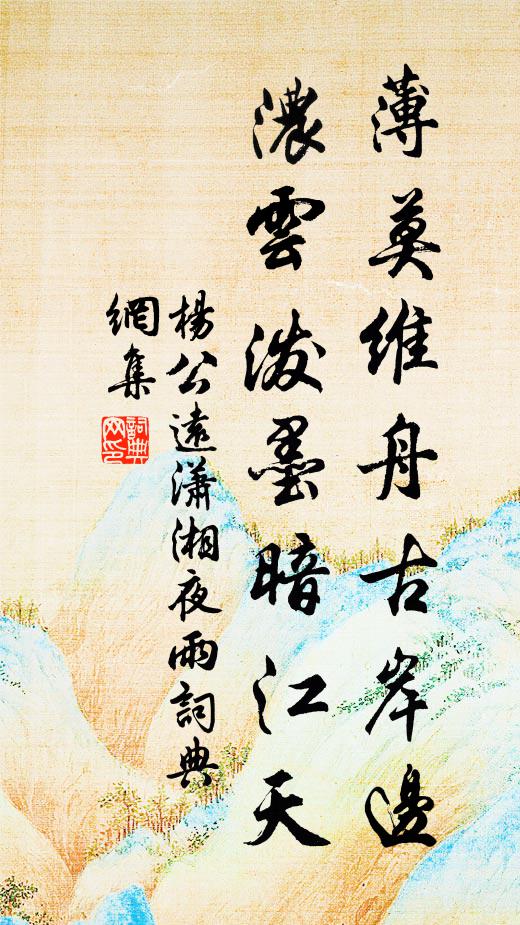 薄莫維舟古岸邊
濃雲潑墨暗江天
楊公遠瀟湘夜雨詞典
網集
詞典
网印